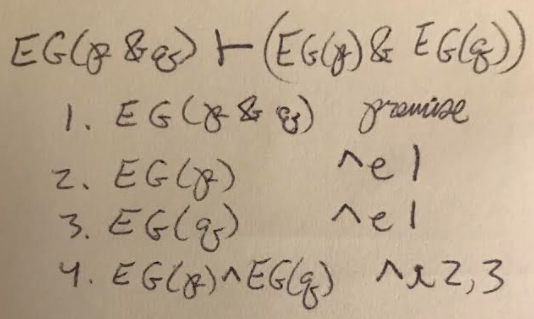 EG(p & q) ⊢ (EG(p) & EG(q))
1. EG(p & q) premise
2. EG(p) ^e 1
3. EG(q) ^e 1
4. EG(p)^EG(q) ^i 2,3